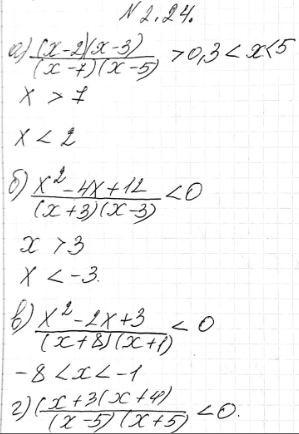 № 2.24.
а) (x-2)(x-3)/(x-7)(x-5) > 0, 3 < x < 5
x > 7
x < 2
б) x² - 4x + 12/(x+3)(x-3) < 0
x > 3
x < -3.
в) x² - 2x + 3/(x+8)(x+1) < 0
-8 < x < -1
г) (x+3(x+4)/(x-5)(x+5) < 0.